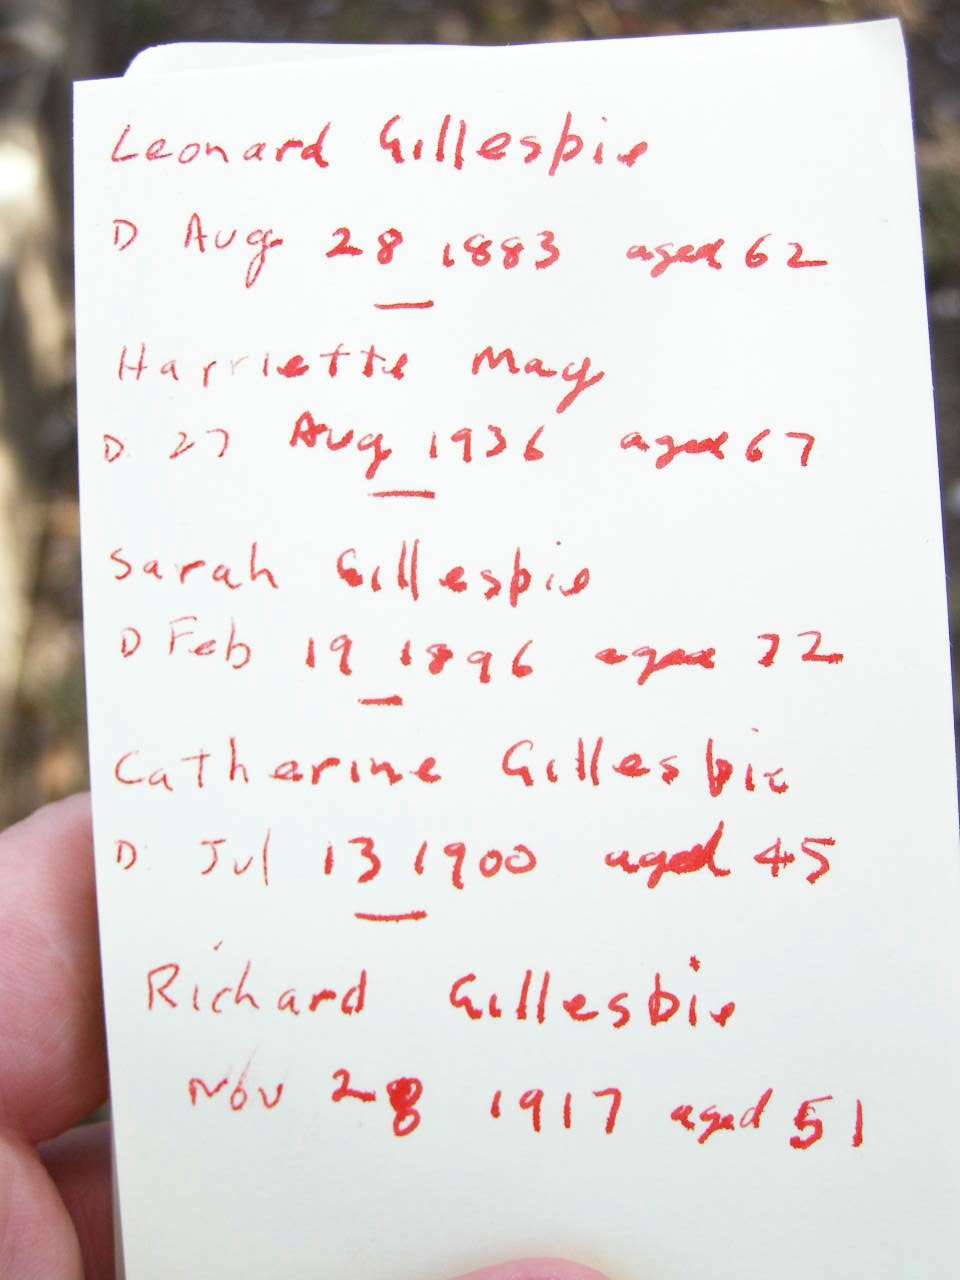 Leonard Gillespie
D Aug 28 1883 aged 62
Harriette May
D. 27 Aug 1936 aged 67
Sarah Gillespie
D Feb 19 1896 aged 72
Catherine Gillespie
D. Jul 13 1900 aged 45
Richard Gillespie
Nov 28 1917 aged 51